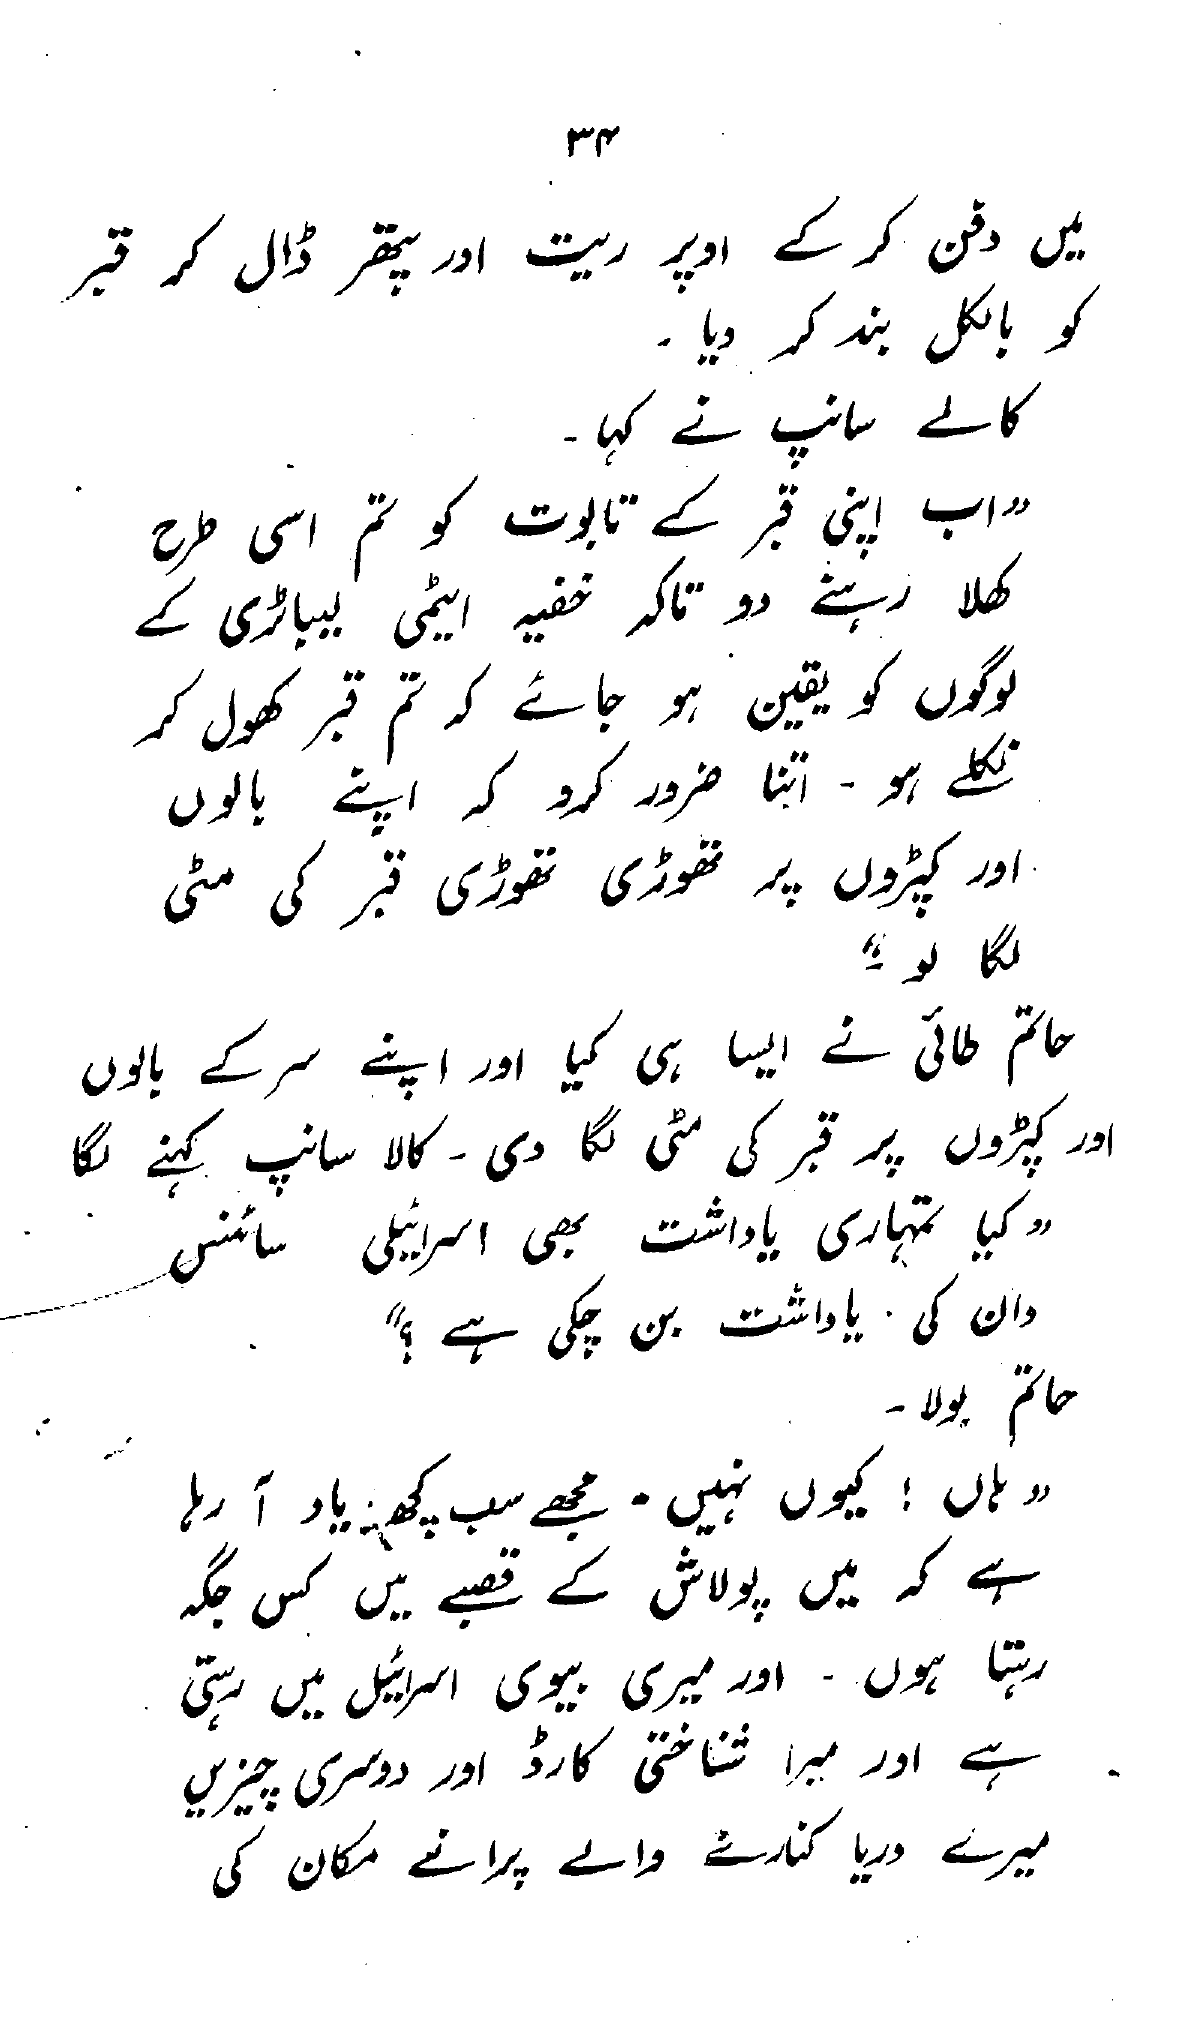 ۳۴
میں دفن کر کے اوپر ریت اور پتھر ڈال کر قبر
کو بالکل بند کر دیا ۔
کالے سانپ نے کہا۔
”اب اپنی قبر کے تابوت کو تم اسی طرح
کھلا رہنے دو تاکہ خفیہ ایٹمی لیباٹری کے
لوگوں کو یقین ہو جائے کہ تم قبر کھول کر
نکلے ہو ۔ اتنا ضرور کرو کہ اپنے بالوں
اور کپڑوں پر تھوڑی تھوڑی قبر کی مٹی
لگا لو ۔“
حاتم طائی نے ایسا ہی کیا اور اپنے سر کے بالوں
اور کپڑوں پر قبر کی مٹی لگا دی ۔ کالا سانپ کہنے لگا
”کیا تمہاری یاداشت بھی اسرائیلی سائنس
دان کی یاداشت بن چکی ہے ؟“
حاتم بولا ۔
”ہاں ! کیوں نہیں ۔ مجھے سب کچھ یاد آ رہا
ہے کہ میں پولاش کے قصبے میں کس جگہ
رہتا ہوں ۔ اور میری بیوی اسرائیل میں رہتی
ہے اور میرا شناختی کارڈ اور دوسری چیزیں
میرے دریا کنارے والے پرانے مکان کی